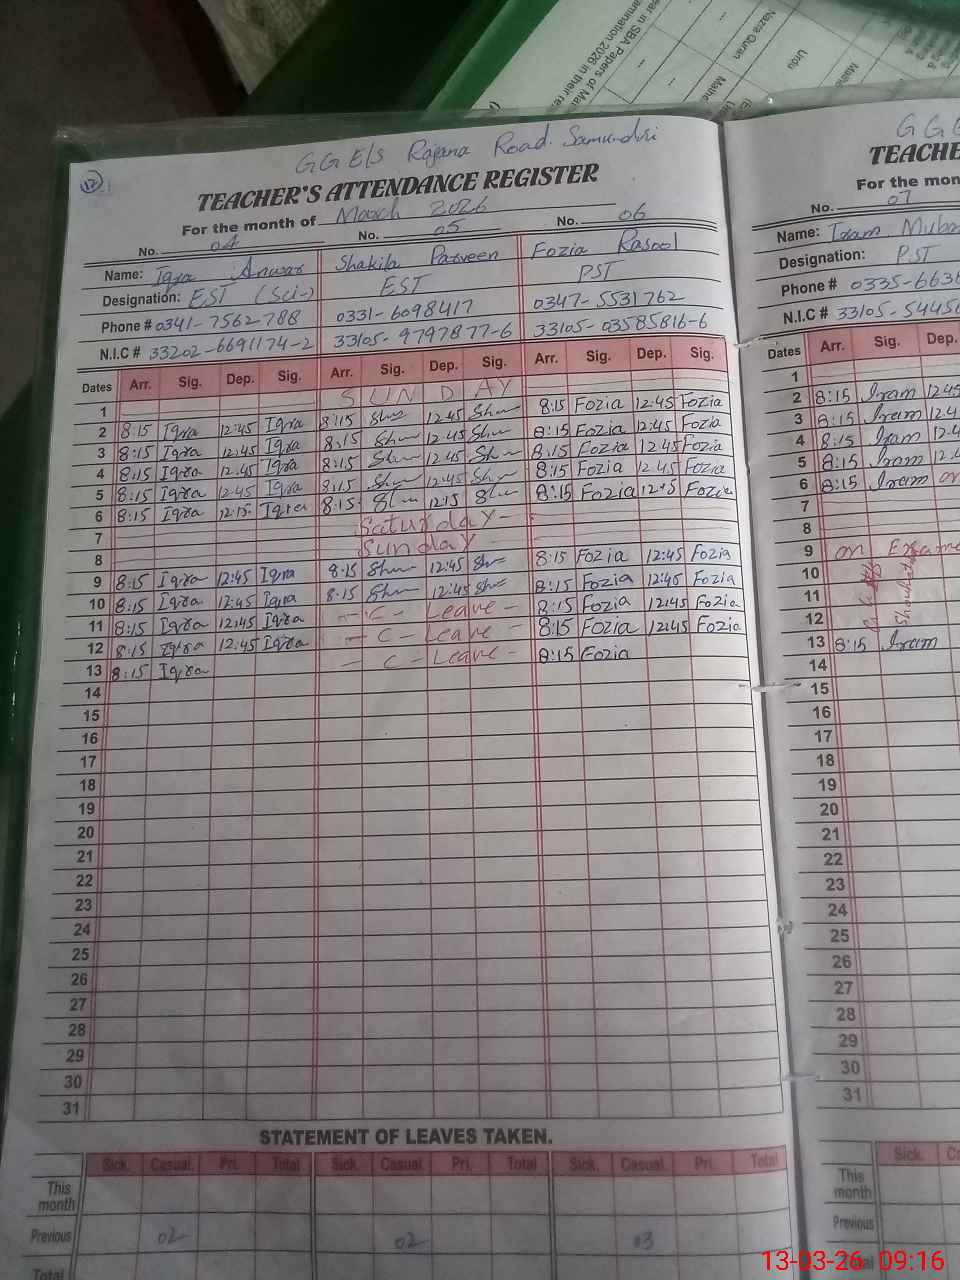 (Nazra Quran
Urdu
Maths
GGE/s Rajana Road. Samundri
TEACHER'S ATTENDANCE REGISTER
For the month of March 2026
No. 04 No. 05 No. 06
Name: Iqra Anwar Shakila Parveen Fozia Rasool
Designation: EST (Sci-) EST PST
Phone # 0341-7562-788 0331-6098417 0347-5531762
N.I.C # 33202-6691174-2 33105-9797877-6 33105-03585816-6
Dates Arr. Sig. Dep. Sig. Arr. Sig. Dep. Sig. Arr. Sig. Dep. Sig.
1 SUNDAY
2 8:15 Iqra 12:45 Iqra 8:15 12:45 8:15 Fozia 12:45 Fozia
3 8:15 Iqra 12:45 Iqra 8:15 12:45 8:15 Fozia 12:45 Fozia
4 8:15 Iqra 12:45 Iqra 8:15 12:45 8:15 Fozia 12:45 Fozia
5 8:15 Iqra 12:45 Iqra 8:15 12:45 8:15 Fozia 12:45 Fozia
6 8:15 Iqra 12:15 Iqra 8:15 12:15 8:15 Fozia Fozia
7 Saturday-
8 Sunday-
9 8:15 Iqra 12:45 Iqra 8:15 12:45 8:15 Fozia 12:45 Fozia
10 8:15 Iqra 12:45 Iqra 8:15 12:45 8:15 Fozia 12:45 Fozia
11 8:15 Iqra 12:45 Iqra - C - Leave - 8:15 Fozia 12:45 Fozia
12 8:15 Iqra 12:45 Iqra - C - Leave - 8:15 Fozia 12:45 Fozia
13 8:15 Iqra - C - Leave - 8:15 Fozia
14
15
16
17
18
19
20
21
22
23
24
25
26
27
28
29
30
31
STATEMENT OF LEAVES TAKEN.
Sick. Casual. Pri. Total Sick. Casual. Pri. Total Sick. Casual. Pri. Total
This month
Previous 02 02 03
Total
GGE
TEACHE
For the mon
No. 07
Name: Iram Muba
Designation: PST
Phone # 0335-6636
N.I.C # 33105-5445
Dates Arr. Sig. Dep.
1
2 8:15 Iram 12:45
3 8:15 Iram 12:4
4 8:15 Iram 12:4
5 8:15 Iram 12:
6 8:15 Iram on
7
8
9 on
10
11
12
13 8:15 Iram
14
15
16
17
18
19
20
21
22
23
24
25
26
27
28
29
30
31
Sick.
This month
Previous
13-03-26 09:16